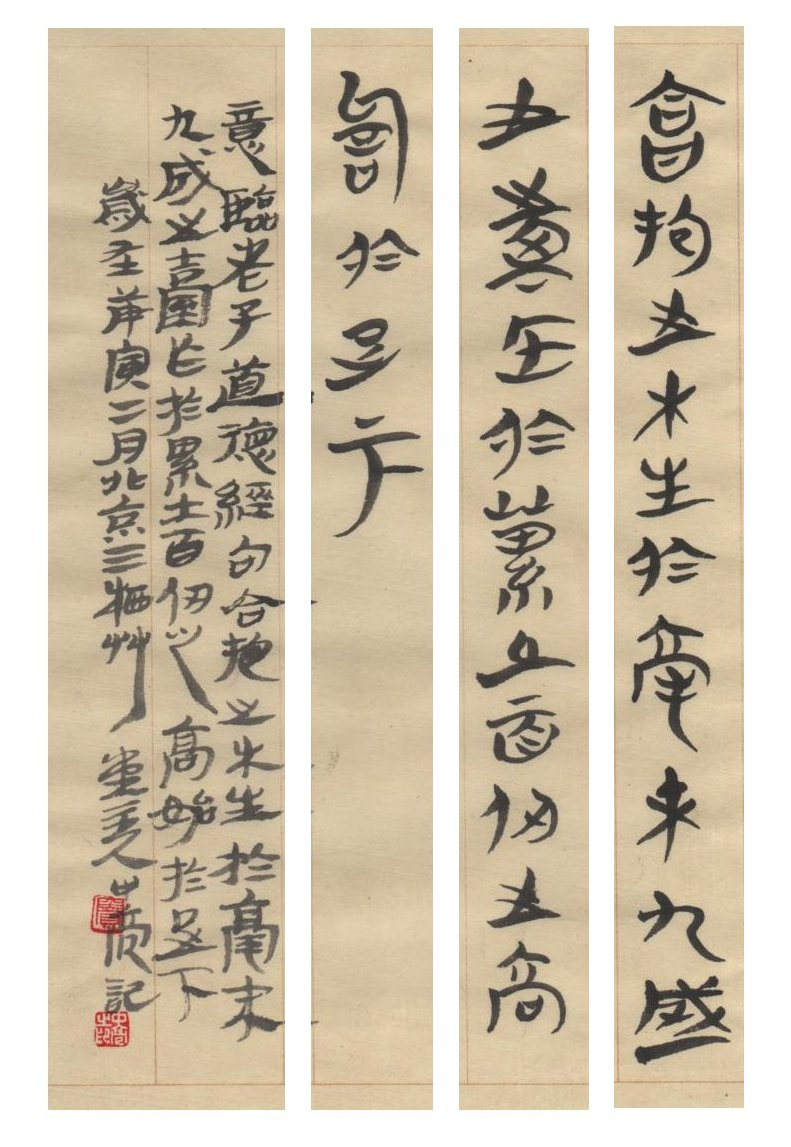 合抱之木生於毫末九成
之臺作於蔂土百仞之高
始於足下
意臨老子道德經句合抱之木生於毫末
九成之臺作於累土百仞之高始於足下
歲在庚寅二月北京三栖艸堂主人記